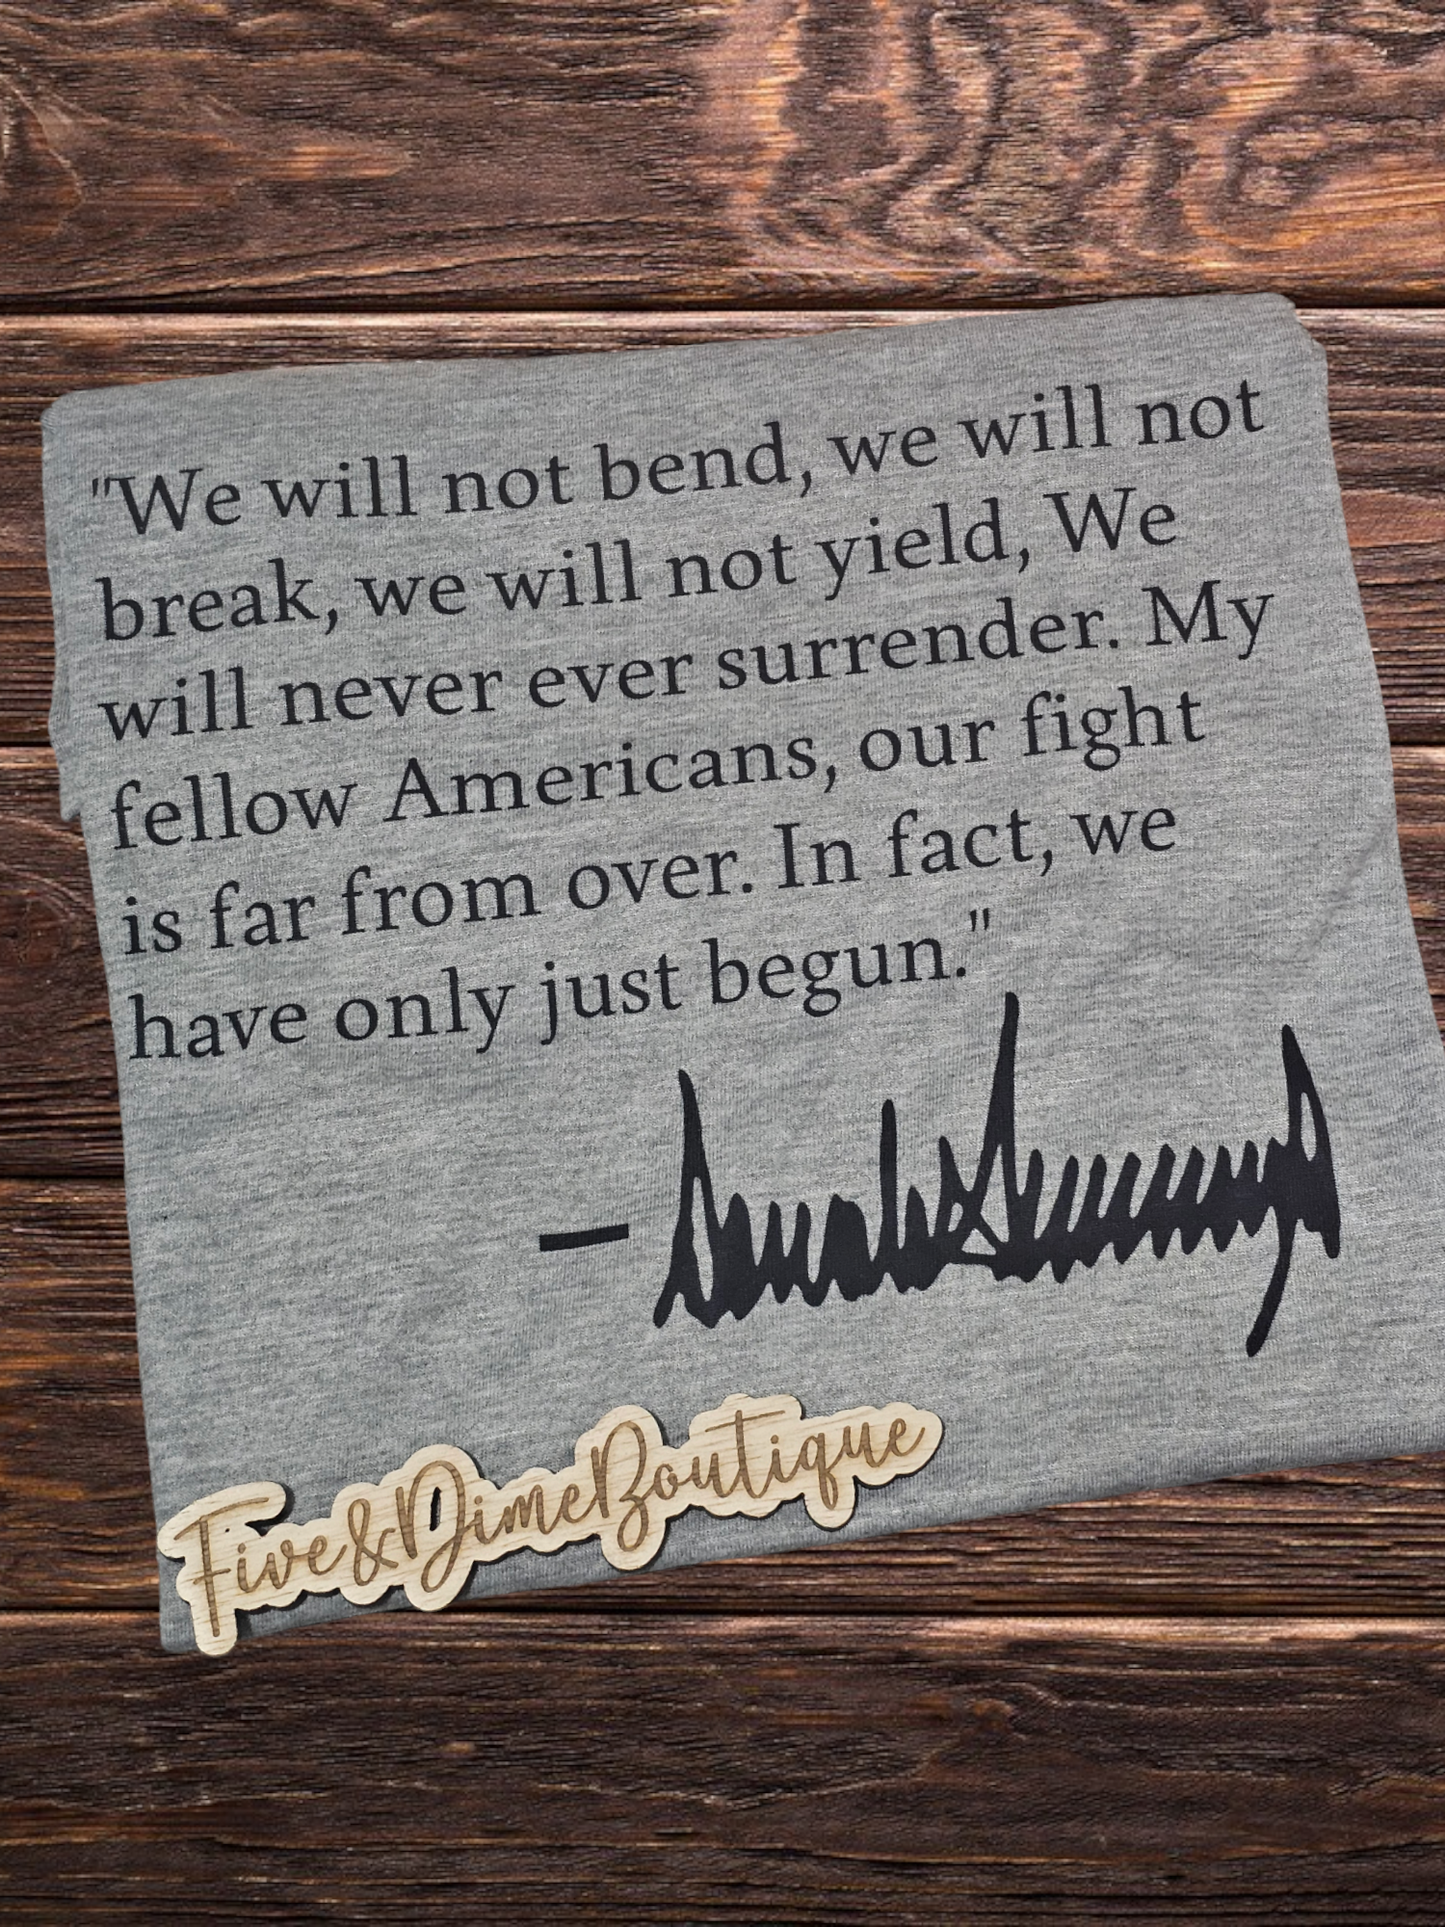 "We will not bend, we will not
break, we will not yield, We
will never ever surrender. My
fellow Americans, our fight
is far from over. In fact, we
have only just begun."
— Donald Trump
Five&DimeBoutique